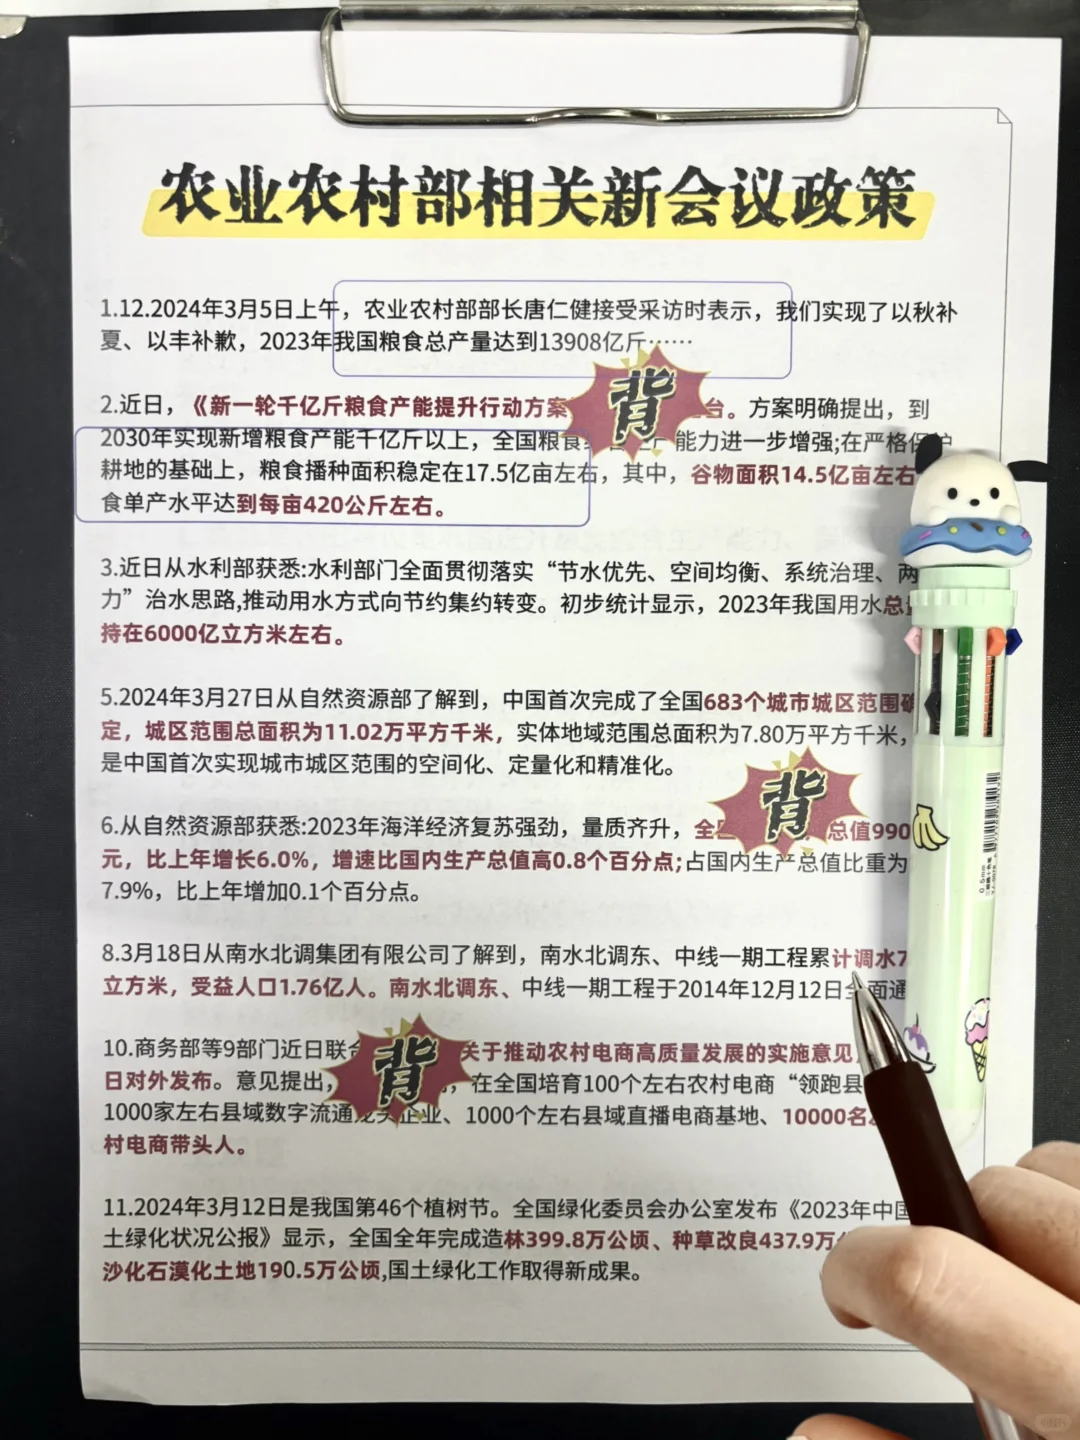 农业农村部相关新会议政策
1.12.2024年3月5日上午，农业农村部部长唐仁健接受采访时表示，我们实现了以秋补
夏、以丰补歉，2023年我国粮食总产量达到13908亿斤……
背
2.近日，《新一轮千亿斤粮食产能提升行动方案 台。方案明确提出，到
2030年实现新增粮食产能千亿斤以上，全国粮食 能力进一步增强;在严格保护
耕地的基础上，粮食播种面积稳定在17.5亿亩左右，其中，谷物面积14.5亿亩左右
食单产水平达到每亩420公斤左右。
3.近日从水利部获悉:水利部门全面贯彻落实“节水优先、空间均衡、系统治理、两
力”治水思路,推动用水方式向节约集约转变。初步统计显示，2023年我国用水总
持在6000亿立方米左右。
5.2024年3月27日从自然资源部了解到，中国首次完成了全国683个城市城区范围确
定，城区范围总面积为11.02万平方千米，实体地域范围总面积为7.80万平方千米，
是中国首次实现城市城区范围的空间化、定量化和精准化。
背
6.从自然资源部获悉:2023年海洋经济复苏强劲，量质齐升，全 总值990
元，比上年增长6.0%，增速比国内生产总值高0.8个百分点;占国内生产总值比重为
7.9%，比上年增加0.1个百分点。
8.3月18日从南水北调集团有限公司了解到，南水北调东、中线一期工程累计调水7
立方米，受益人口1.76亿人。南水北调东、中线一期工程于2014年12月12日全面通
背
10.商务部等9部门近日联合 关于推动农村电商高质量发展的实施意见
日对外发布。意见提出， 在全国培育100个左右农村电商“领跑县
1000家左右县域数字流通龙头企业、1000个左右县域直播电商基地、10000名
村电商带头人。
11.2024年3月12日是我国第46个植树节。全国绿化委员会办公室发布《2023年中国
土绿化状况公报》显示，全国全年完成造林399.8万公顷、种草改良437.9万
沙化石漠化土地190.5万公顷,国土绿化工作取得新成果。
0.5mm